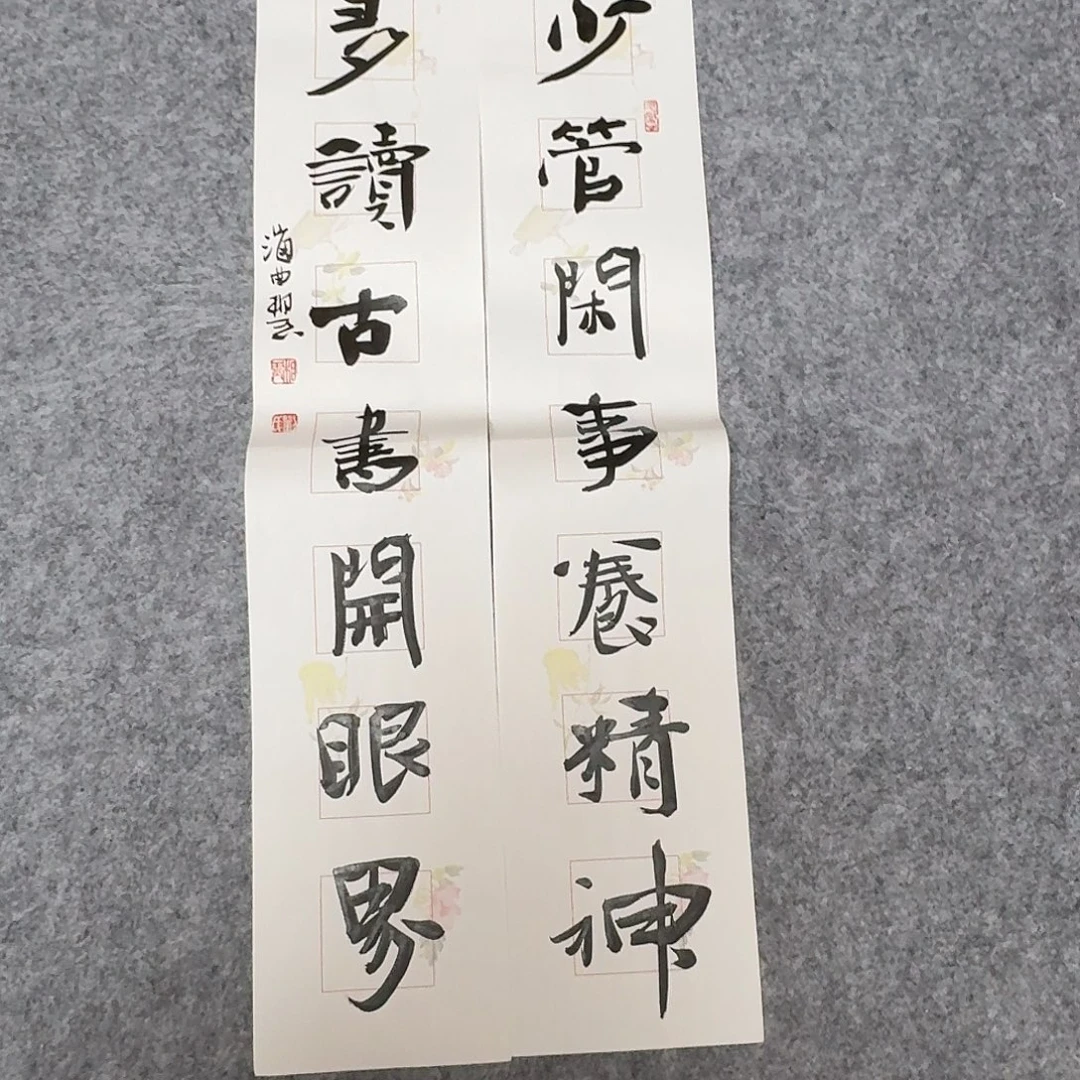 少管閑事養精神
多讀古書開眼界